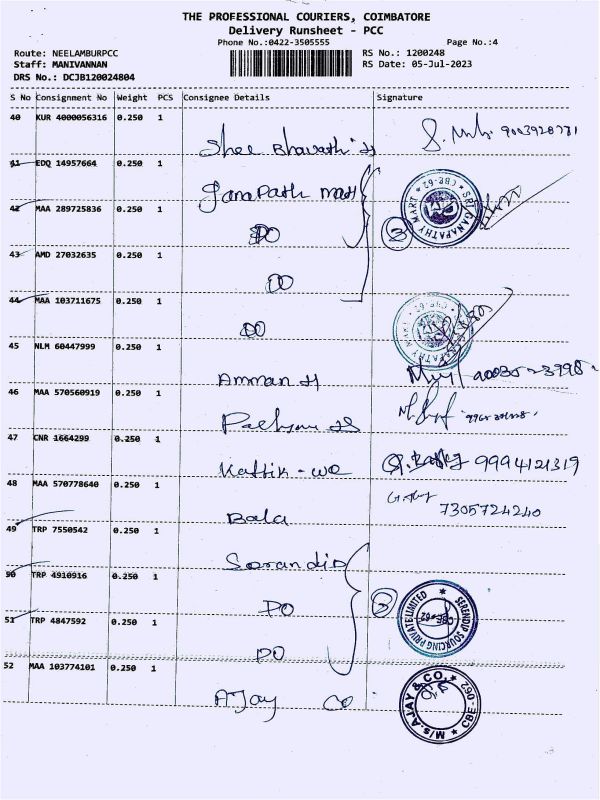 THE PROFESSIONAL COURIERS, COIMBATORE
Delivery Runsheet - PCC
Phone No.:0422-3505555 Page No.:4
Route: NEELAMBURPCC RS No.: 1200248
Staff: MANIVANNAN RS Date: 05-Jul-2023
DRS No.: DCJB120024804
S No Consignment No Weight PCS Consignee Details Signature
40 KUR 4000056316 0.250 1
Shee Bhavath 9003928781
41 EDQ 14957664 0.250 1
Ganapath mart
42 MAA 289725836 0.250 1
SRI GANAPATHY MART ★ CBE-62 ★
DO 3
43 AMD 27032635 0.250 1
DO
44 MAA 103711675 0.250 1
DO
45 NLM 60447999 0.250 1
Amman H
46 MAA 570560919 0.250 1
47 CNR 1664299 0.250 1
Kattik - we 9994121319
48 MAA 570778640 0.250 1
Bala 7305724240
49 TRP 7550542 0.250 1
Sorandip
50 TRP 4910916 0.250 1
DO 3
SERENDIP SOURCING PRIVATE LIMITED ★ CBE-62
51 TRP 4847592 0.250 1
DO
52 MAA 103774101 0.250 1
AJay co
M/s.AJAY & CO, ★ CBE-062 ★